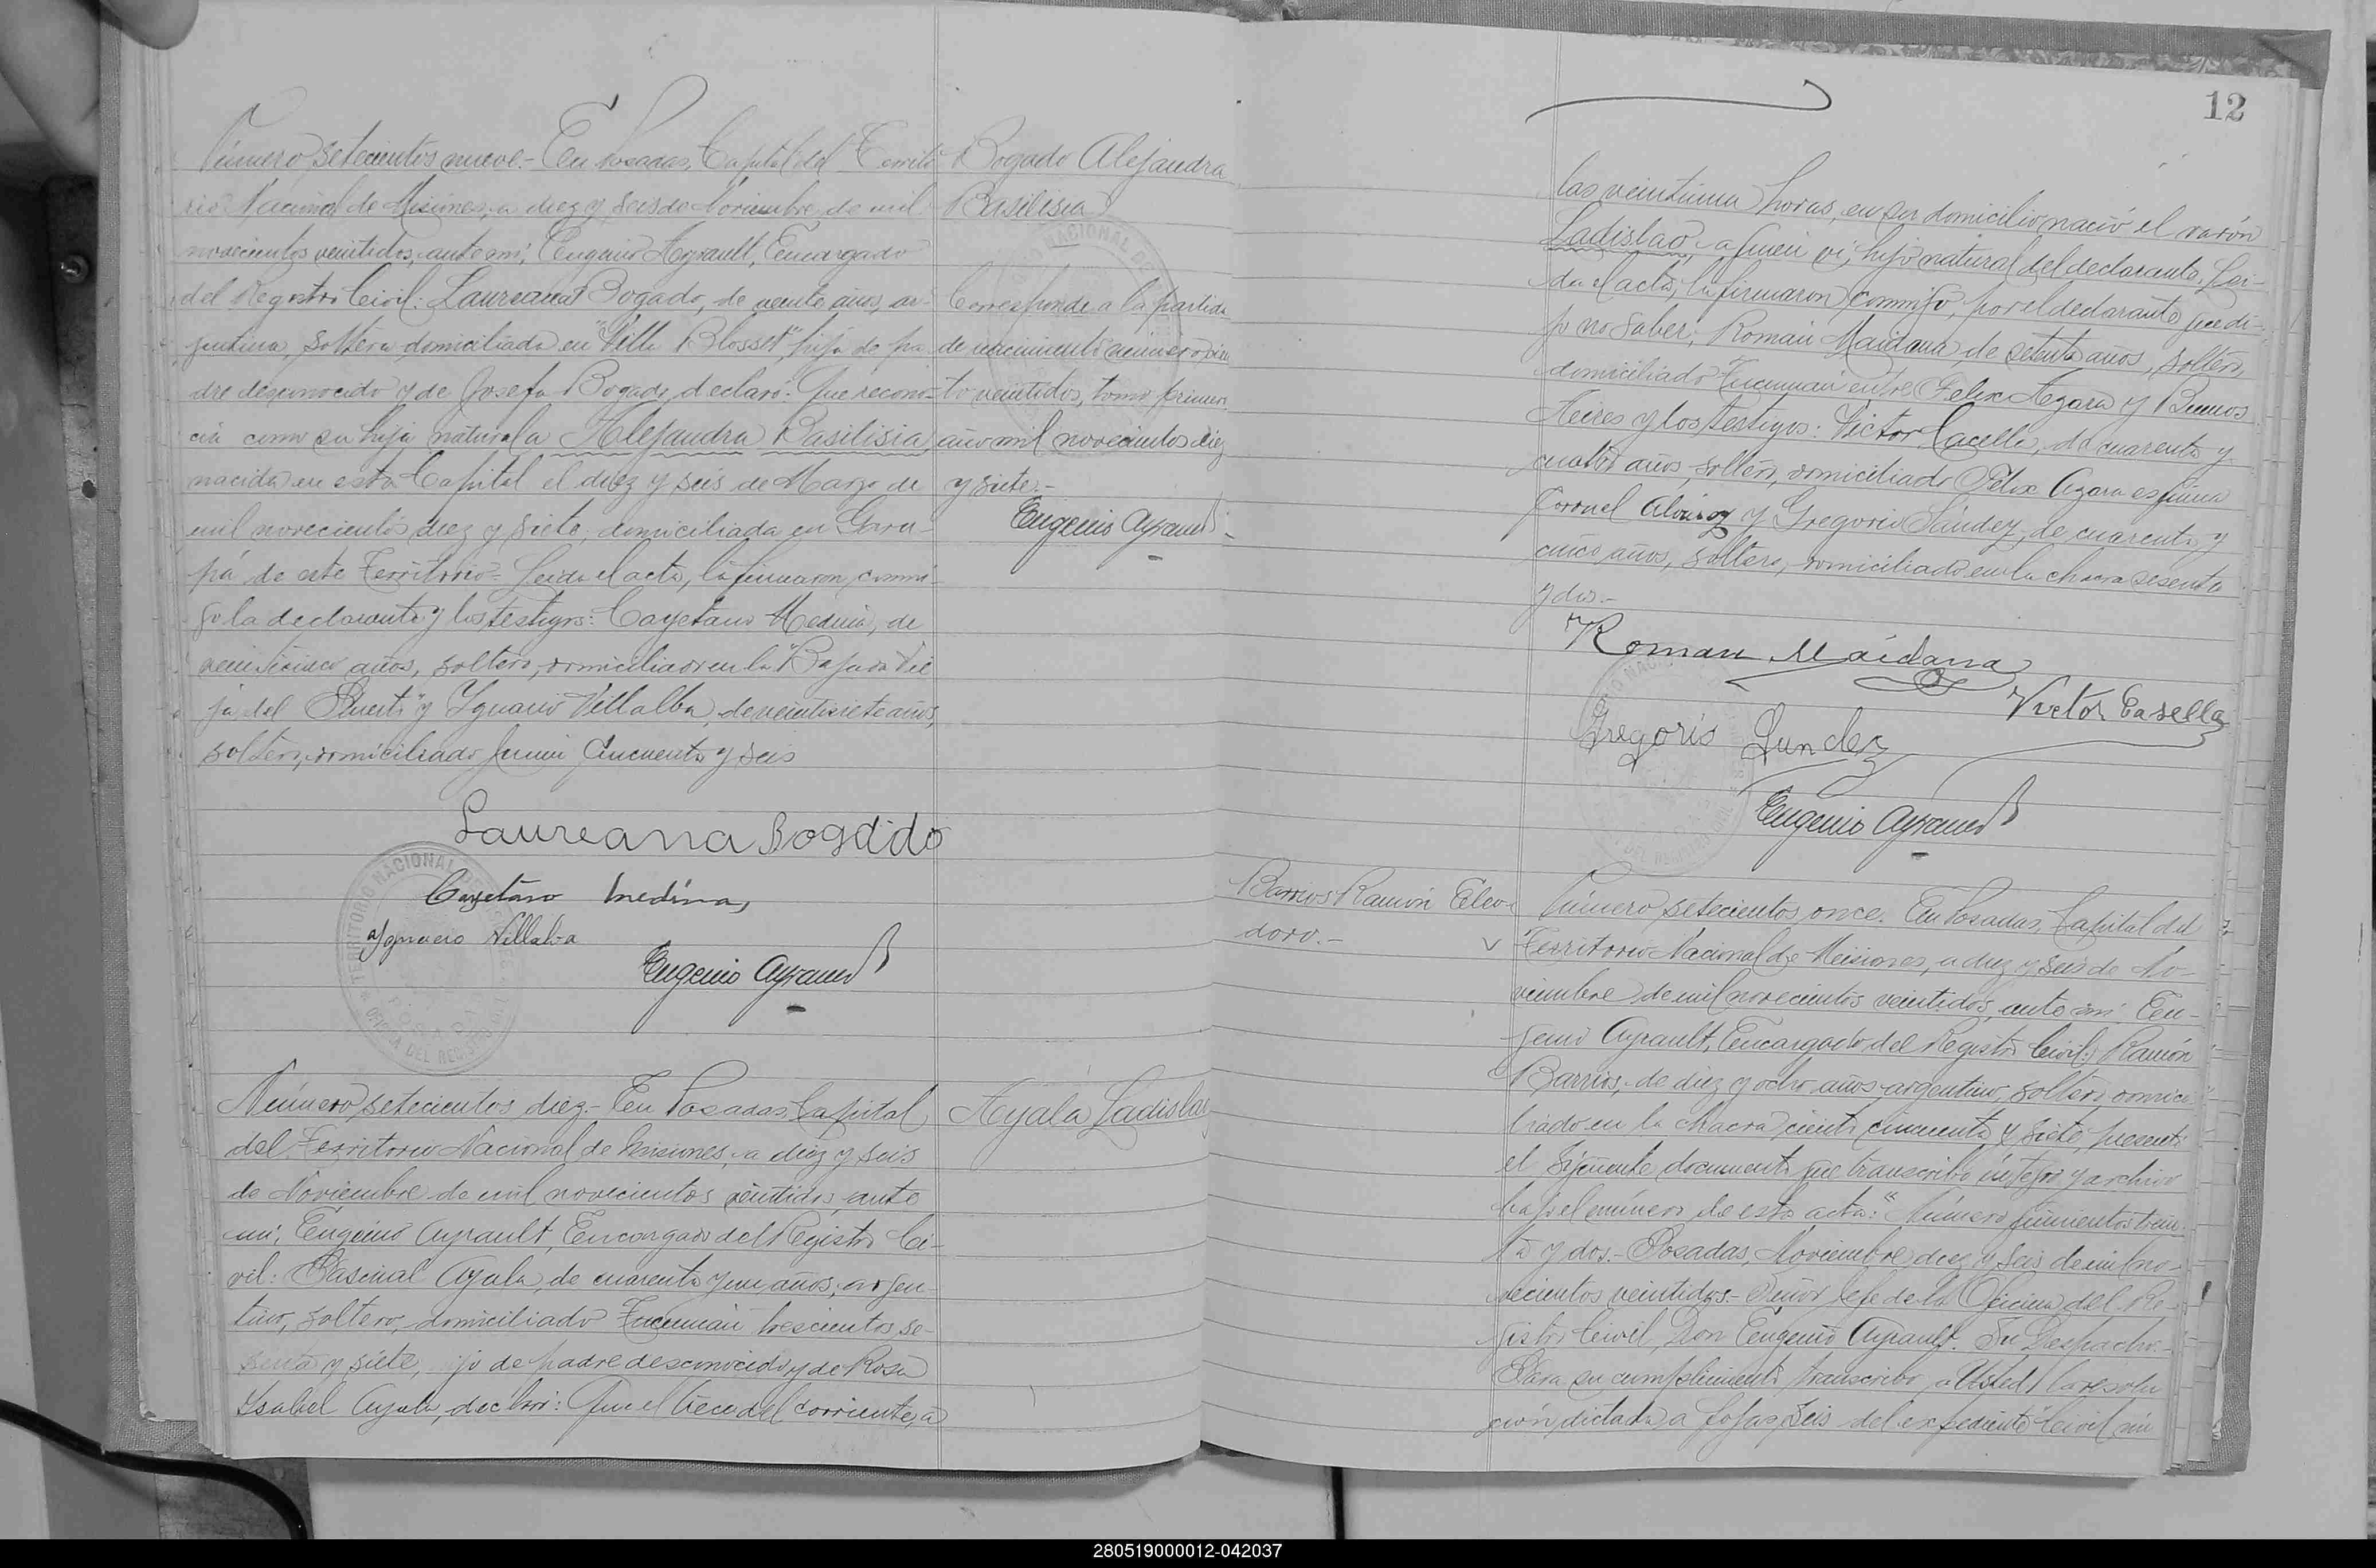 Número setecientos nueve.- En Posadas, Capital del Territo-
rio Nacional de Misiones, a diez y seis de Noviembre de mil
novecientos veintidos, ante mi, Eugenio Ayrault, Encargado
del Registro Civil: Laureana Bogado, de veinte años, ar-
jentina, soltera, domiciliada en "Villa Blosset", hija de pa-
dre desconocido y de Josefa Bogado, declaró: Que recono-
cía como su hija natural a Alejandra Basilisia,
nacida en esta Capital el diez y seis de Marzo de
mil novecientos diez y siete, domiciliada en Garu-
pá de este Territorio.- Leida el acta, la firmaron conmi-
go la declarante y los testigos: Cayetano Medina, de
veinticinco años, soltero, domiciliado en la "Bajada Vie-
ja del Puerto" y Ygnacio Villalba, de veintisiete años,
soltero, domiciliado Junin cincuenta y seis
Bogado Alejandra
Basilisia
Corresponde a la partida
de nacimiento número cien-
to veintidos, tomo primero,
año mil novecientos diez
y siete.-
Eugenio Ayrault
Laureana Bogado
Cayetano Medina
Ygnacio Villalba
Eugenio Ayrault
TERRITORIO NACIONAL DE MISIONES
POSADAS
OFICINA DEL REGISTRO CIVIL
Número setecientos diez.- En Posadas, Capital
del Territorio Nacional de Misiones, a diez y seis
de Noviembre de mil novecientos veintidos, ante
mi, Eugenio Ayrault, Encargado del Registro Ci-
vil: Pascual Ayala, de cuarenta y un años, argen-
tino, soltero, domiciliado Tucumán trescientos se-
senta y siete, hijo de padre desconocido y de Rosa
Ysabel Ayala, declaró: Que el trece del corriente, a
Ayala Ladislao
12
las veintiuna horas, en su domicilio nació el varón
Ladislao, a quien vi, hijo natural del declarante. Lei-
da el acta, la firmaron conmigo, por el declarante que di-
jo no saber; Román Maidana, de setenta años, soltero,
domiciliado Tucumán entre Felix Azara y Buenos
Aires y los testigos: Victor Caselle, de cuarenta y
cuatro años, soltero, domiciliado Félix Azara esquina
Coronel Alvarez y Gregorio Sández, de cuarenta y
cinco años, soltero, domiciliado en la chacra sesenta
y dos.-
Roman Maidana
Victor Casella
Gregorio Sandez
Eugenio Ayrault
Barrios Ramón Eleo-
doro.-
Número setecientos once. En Posadas, Capital del
Territorio Nacional de Misiones, a diez y seis de No-
viembre de mil novecientos veintidos, ante mi Eu-
genio Ayrault, Encargado del Registro Civil: Ramón
Barrios, de diez y ocho años, argentino, soltero, domici-
liado en la chacra ciento cincuenta y siete, presentó
el siguiente documento que transcribo íntegro y archivo
bajo el número de esta acta: "Número quinientos trein-
ta y dos.- Posadas, Noviembre diez y seis de mil no-
vecientos veintidos.- Señor Jefe de la Oficina del Re-
gistro Civil, Don Eugenio Ayrault. Su Despacho.-
Para su cumplimiento transcribo a Usted la resolu-
ción dictada a fojas seis del expediente Civil nú-
280519000012-042037